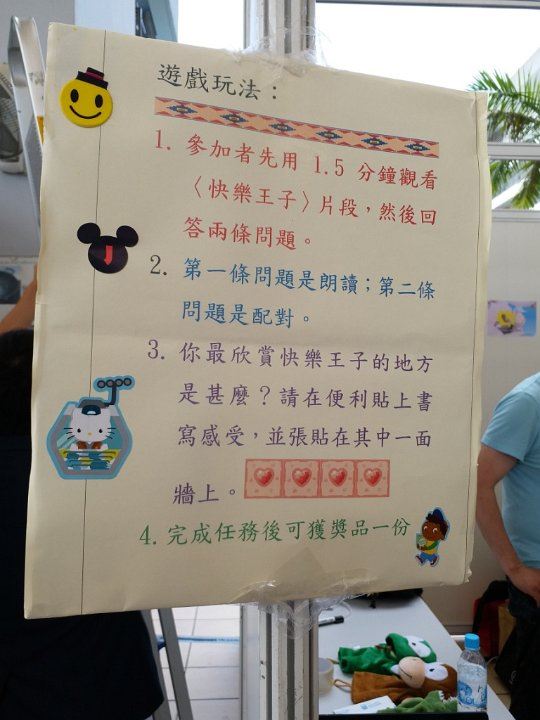 遊戲玩法：
1. 參加者先用 1.5 分鐘觀看
〈快樂王子〉片段，然後回
答兩條問題。
2. 第一條問題是朗讀；第二條
問題是配對。
3. 你最欣賞快樂王子的地方
是甚麼？請在便利貼上書
寫感受，並張貼在其中一面
牆上。
4. 完成任務後可獲獎品一份